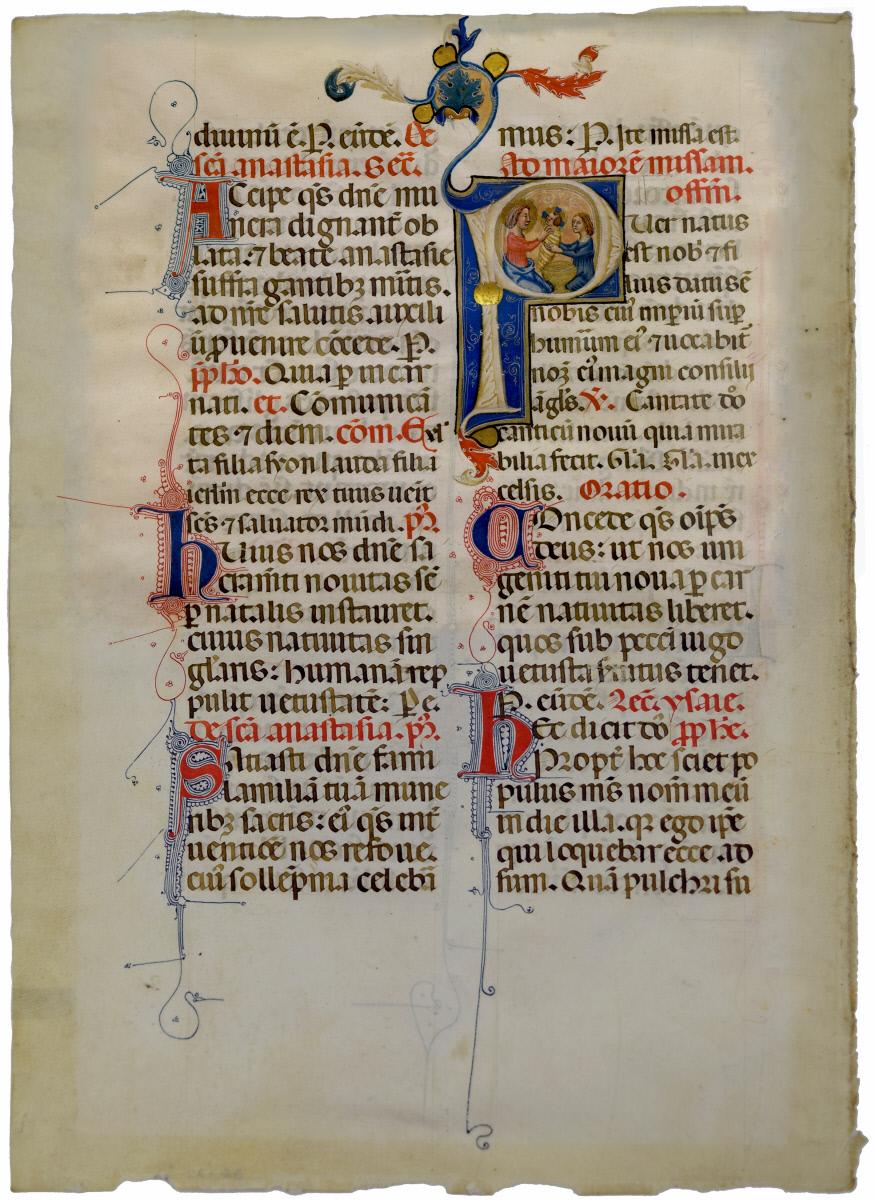 diuinū ē. P. eūdē. De
scā anastasia. Sec̄.
ACcipe qs dn̄e mu
nera dignant̄ ob
lata. ⁊ beate anastasie
suffragantibꝫ m̄itis.
ad nr̄e salutis auxili
ū ꝓuenire cōcede. P.
p̄pħo. Quia ꝑ incar
nati. et. Cōmunicā
tes ⁊ diem. cōm. Exl̄
ta filia syon lauda filia
ierl̄m ecce rex tuus ueīt
sc̄s ⁊ saluator mūdi. pꝰ.
hUius nos dn̄e sa
cram̄ti nouitas sē
ꝑ natalis instauret.
cuius natiuitas sin
glaris: humanā rep
pulit uetustatē: Pe.
De scā anastasia. pꝰ.
SAtiasti dn̄e fami
familiā tuā mune
ribꝫ sacris: eī qs int̄
uentiōe nos refoue.
cuiꝰ sollēpnia celebā
mus: P. Ite missa est.
Ad maiorē missam.
offm̄.
PUer natus
est nob̄ ⁊ fi
lius datus ē
nobis cuiꝰ inꝑiū suꝑ
humerū eiꝰ ⁊ uocabit̄
nom̄ eiꝰ magni consilii
āgl̄s. V. Cantate dn̄o
canticū nouū quia mira
bilia fecit. Gl̄a. Gl̄a. inex
celsis. Oratio.
COncede qs oīps
deus: ut nos uni
geniti tui noua ꝑ car
nē natiuitas liberet.
quos sub peccī iugo
uetusta s̄uitus tenet.
P. eūdē. Lec̄. ysaie.
hEc dicit dn̄s p̄pħe.
Propt̄ hoc sciet po
pulus ms̄ nom̄ meū
in die illa. qꝛ ego ip̄e
qui loquebar ecce ad
sum. Quā pulchri su